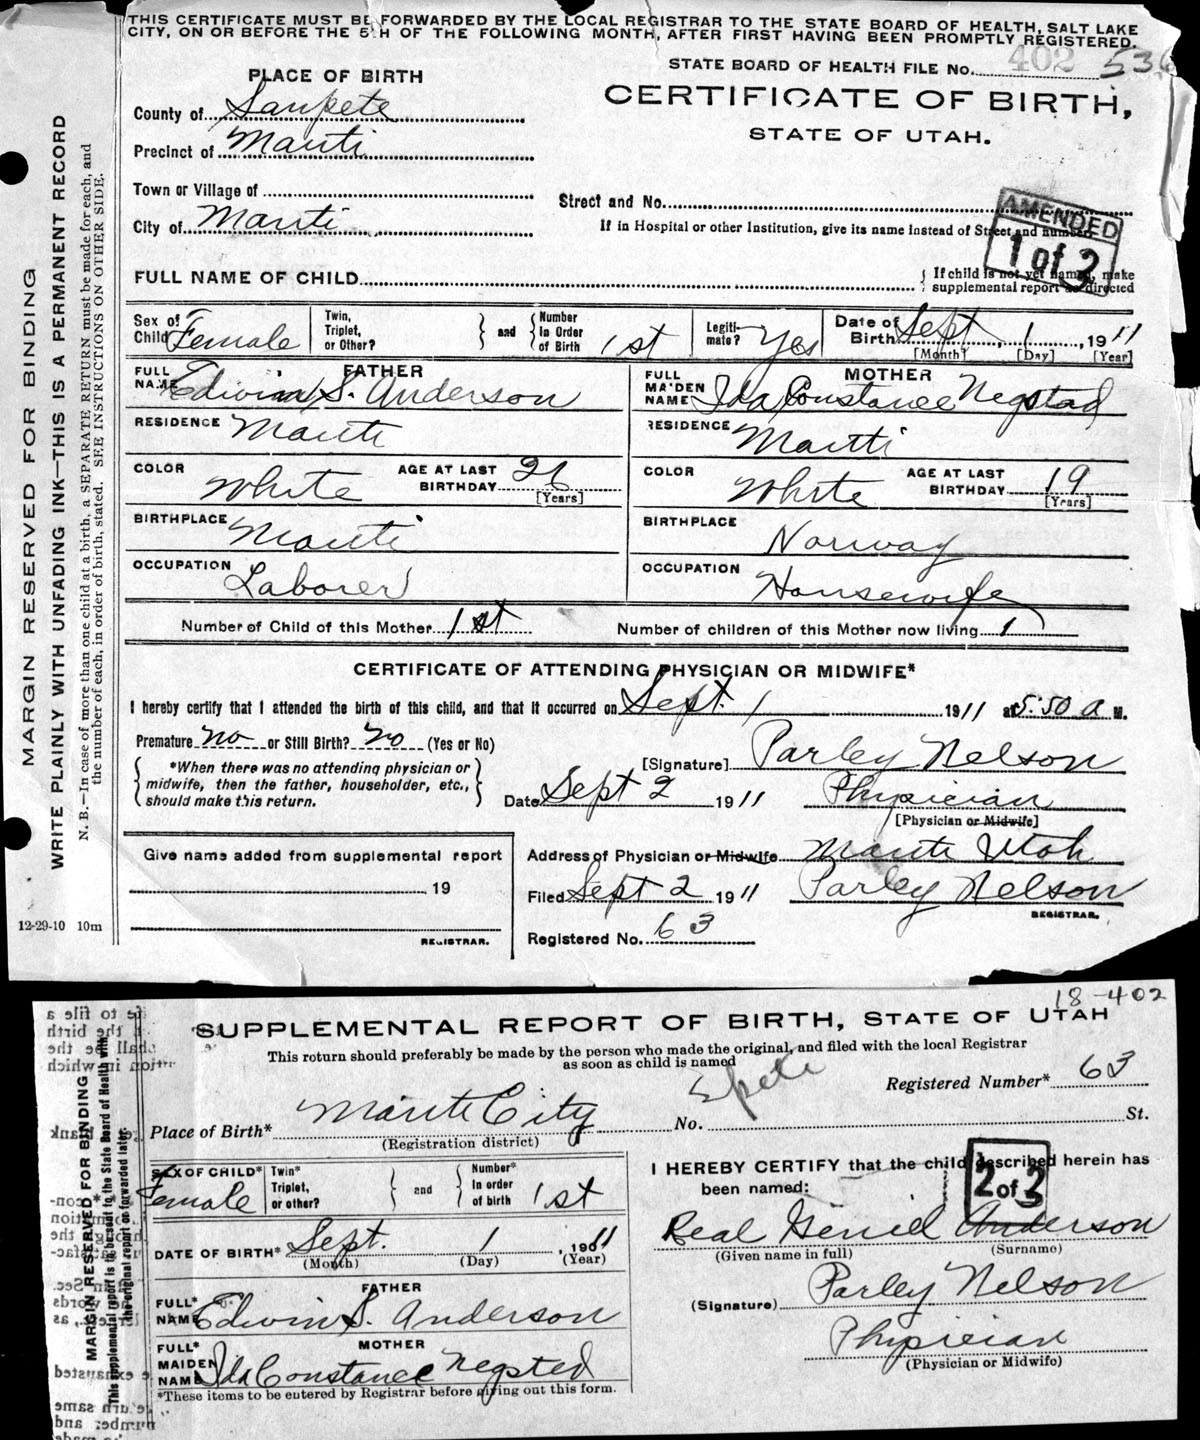 THIS CERTIFICATE MUST BE FORWARDED BY THE LOCAL REGISTRAR TO THE STATE BOARD OF HEALTH, SALT LAKE
CITY, ON OR BEFORE THE 5TH OF THE FOLLOWING MONTH, AFTER FIRST HAVING BEEN PROMPTLY REGISTERED.
STATE BOARD OF HEALTH FILE No. 402 536
PLACE OF BIRTH
CERTIFICATE OF BIRTH,
STATE OF UTAH.
County of Sanpete
Precinct of Manti
Town or Village of
Street and No.
City of Manti
If in Hospital or other Institution, give its name instead of Street and number
AMENDED
1 of 2
FULL NAME OF CHILD
If child is not yet named, make
supplemental report as directed
Sex of Child Female
Twin, Triplet, or Other?
and
Number In Order of Birth 1st
Legiti-mate? Yes
Date of Birth Sept 1, 1911
[Month] [Day] [Year]
FATHER
FULL NAME Edwin S. Anderson
RESIDENCE Manti
COLOR White
AGE AT LAST BIRTHDAY 26
[Years]
BIRTHPLACE Manti
OCCUPATION Laborer
MOTHER
FULL MAIDEN NAME Ida Constance Negstad
RESIDENCE Manti
COLOR White
AGE AT LAST BIRTHDAY 19
[Years]
BIRTHPLACE Norway
OCCUPATION Housewife
Number of Child of this Mother 1st
Number of children of this Mother now living 1
CERTIFICATE OF ATTENDING PHYSICIAN OR MIDWIFE*
I hereby certify that I attended the birth of this child, and that it occurred on Sept. 1 1911 at 5:50 a M.
Premature no or Still Birth? no (Yes or No)
[Signature] Parley Nelson
*When there was no attending physician or
midwife, then the father, householder, etc.,
should make this return.
Date Sept 2 1911 Physician
[Physician or Midwife]
Give name added from supplemental report
19
REGISTRAR.
Address of Physician or Midwife Manti Utah
Filed Sept 2 1911 Parley Nelson
REGISTRAR.
Registered No. 63
12-29-10 10m
MARGIN RESERVED FOR BINDING
WRITE PLAINLY WITH UNFADING INK—THIS IS A PERMANENT RECORD
N. B.—In case of more than one child at a birth, a SEPARATE RETURN must be made for each, and
the number of each, in order of birth, stated. SEE INSTRUCTIONS ON OTHER SIDE.
18-402
SUPPLEMENTAL REPORT OF BIRTH, STATE OF UTAH
This return should preferably be made by the person who made the original, and filed with the local Registrar
as soon as child is named
Spete
Registered Number* 63
Place of Birth* Manti City No. St.
(Registration district)
SEX OF CHILD* Female
Twin* Triplet, or other?
and
Number* In order of birth 1st
DATE OF BIRTH* Sept. 1, 1911
(Month) (Day) (Year)
FATHER
FULL* NAME Edwin S. Anderson
MOTHER
FULL* MAIDEN NAME Ida Constance Negsted
*These items to be entered by Registrar before giving out this form.
I HEREBY CERTIFY that the child described herein has
been named:
2 of 2
Anderson
(Given name in full) (Surname)
(Signature) Parley Nelson
Physician
(Physician or Midwife)
MARGIN RESERVED FOR BINDING
This supplemental report is to be sent to the State Board of Health with
the original report or forwarded later.